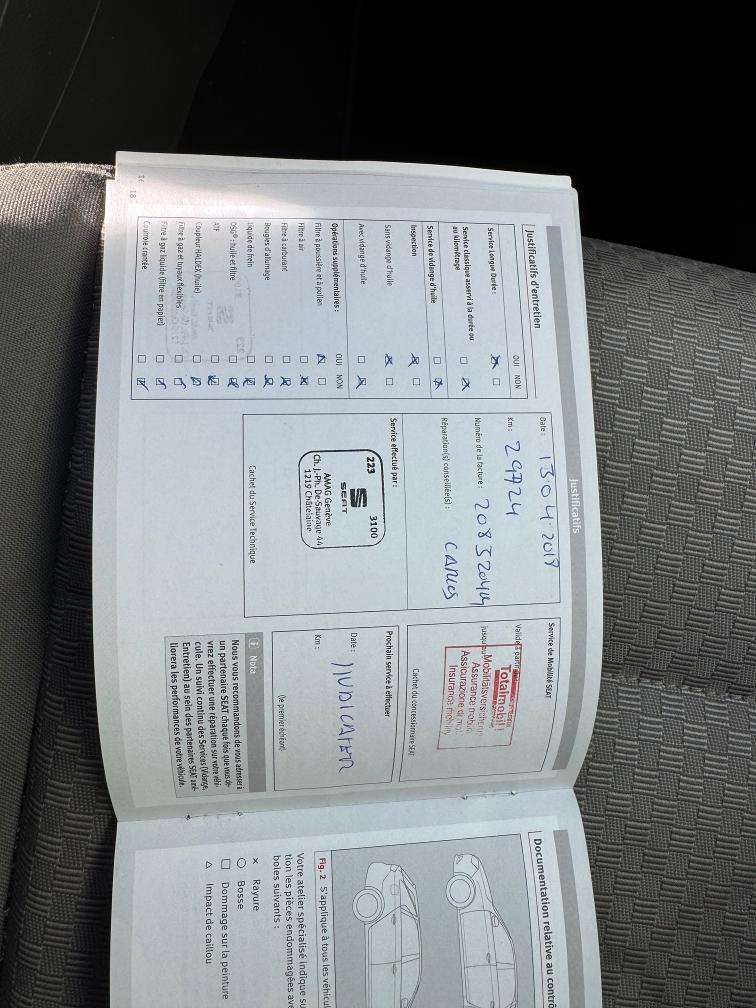 Justificatifs
Justificatifs d'entretien
OUI NON
Service Longue Durée :
Service classique asservi à la durée ou
au kilométrage
Service de vidange d'huile
Inspection
Sans vidange d'huile
Avec vidange d'huile
Opérations supplémentaires : OUI NON
Filtre à poussière et à pollen
Filtre à air
Filtre à carburant
Bougies d'allumage
Liquide de frein
DSG® : huile et filtre
ATF
Coupleur HALDEX (huile)
Filtre à gaz et tuyaux flexibles
Filtre à gaz liquide (filtre en papier)
Courroie crantée
18
Date : 13 04 2018
Km : 29724
Numéro de la facture :
Réparation(s) conseillée(s) :
Service effectué par :
223 3100
SEAT
AMAG Genève
Ch. J.-Ph. De-Sauvage 44
1219 Châtelaine
Cachet du Service Technique
Service de Mobilité SEAT
Totalmobil!
Cachet du concessionnaire SEAT
Prochain service à effectuer
Date :
Km :
(le premier échéant)
i Nota
Nous vous recommandons de vous adresser à
un partenaire SEAT chaque fois que vous de-
vrez effectuer une réparation sur votre véhi-
cule. Un suivi continu des Services (Vidange,
Entretien) au sein des partenaires SEAT amé-
liorera les performances de votre véhicule.
Documentation relative au contrô
Fig. 2 S'applique à tous les véhicul
Votre atelier spécialisé indique su
tion les pièces endommagées ave
boles suivants :
× Rayure
○ Bosse
□ Dommage sur la peinture
△ Impact de caillou